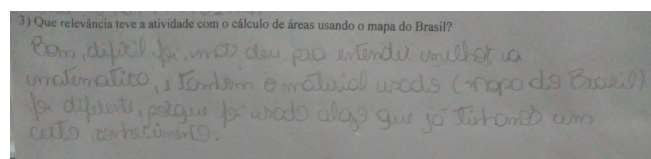 3) Que relevância teve a atividade com o cálculo de áreas usando o mapa do Brasil?
Bom, dificil foi, mas deu pra entender melhor a
matematica, e tambem o material usado (mapa do Brasil)
foi diferente, porque foi usado algo que já tinhamos um
certo conhecimento.